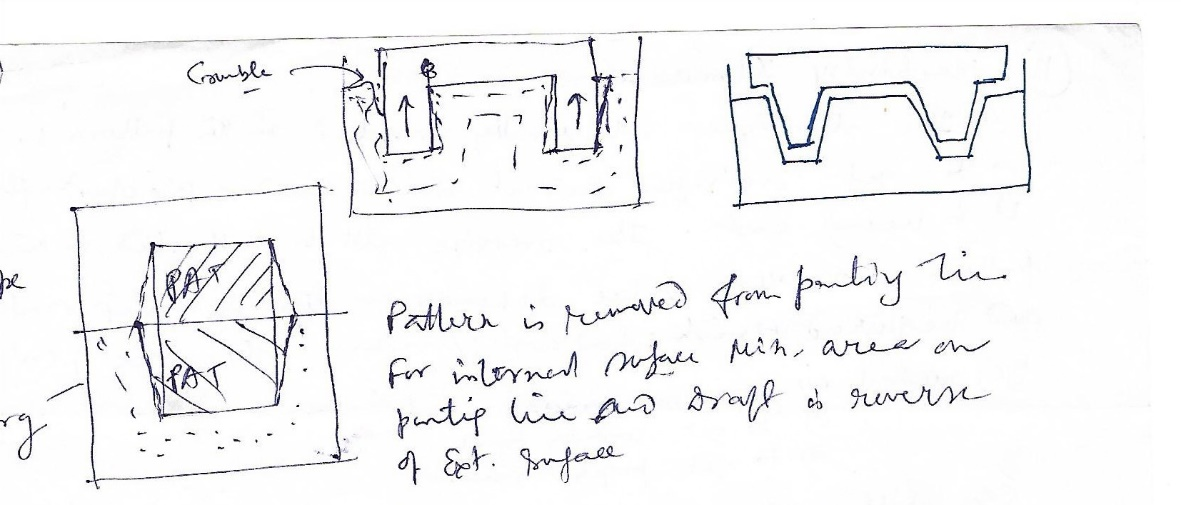 Crumble
B
PAT
PAT
pe
rg
Pattern is removed from parting line
For internal surface Min. area on
parting line and Draft is reverse
of Ext. surface